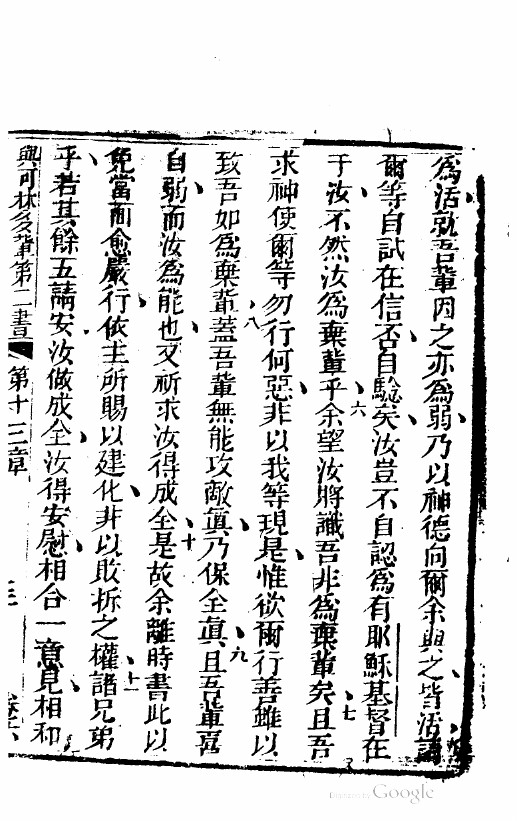 為活就吾輩因之亦為弱乃以神德向爾余與之皆活請
爾等自試在信否自驗矣汝豈不自認為有耶穌基督在
于汝不然汝為棄輩乎六余望汝將識吾非為棄輩矣七且吾
求神使爾等勿行何惡非以我等現是惟欲爾行善雖以
致吾如為棄輩八蓋吾輩無能攻敵眞乃保全眞九且吾輩喜
自弱而汝為能也又祈求汝得成全十是故余離時書此以
免當面愈嚴行依主所賜以建化非以敗拆之權十一諸兄弟
乎若其餘五請安汝做成全汝得安慰相合一意見相和
與可林多輩第二書 第十三章
Digitized by Google